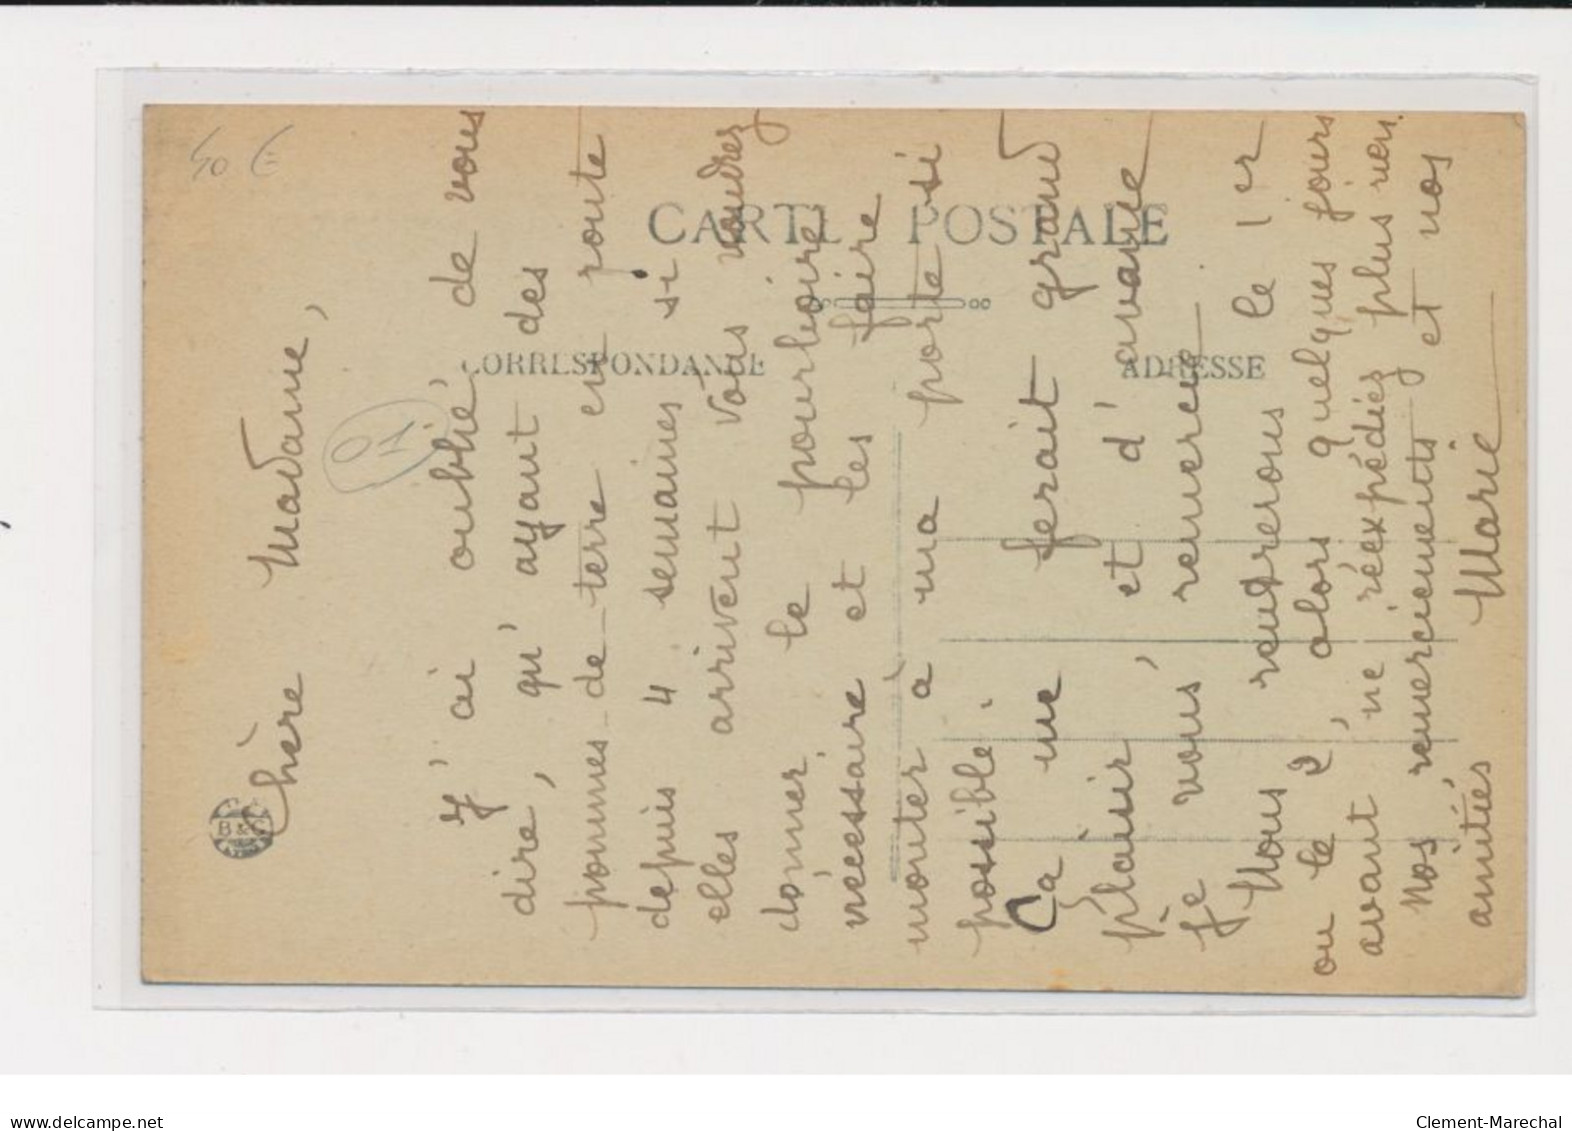 40 €
CARTE POSTALE
CORRESPONDANCE
ADRESSE
B & G
01
Chère Madame,
J'ai oublié, de vous
dire, qu'ayant des
pommes-de-terre en route
depuis 4 semaines si
elles arrivent vous voudrez
donner le pourboire
nécessaire et les faire
monter à ma porte si
possible.
Ça me ferait grand
plaisir, et d'avance
je vous remercie
Nous rentrerons le 1er
ou le 2, alors quelques jours
avant ne réexpédiez plus rien.
Nos remerciements et nos
amitiés Marie
www.delcampe.net
Clement-Marechal